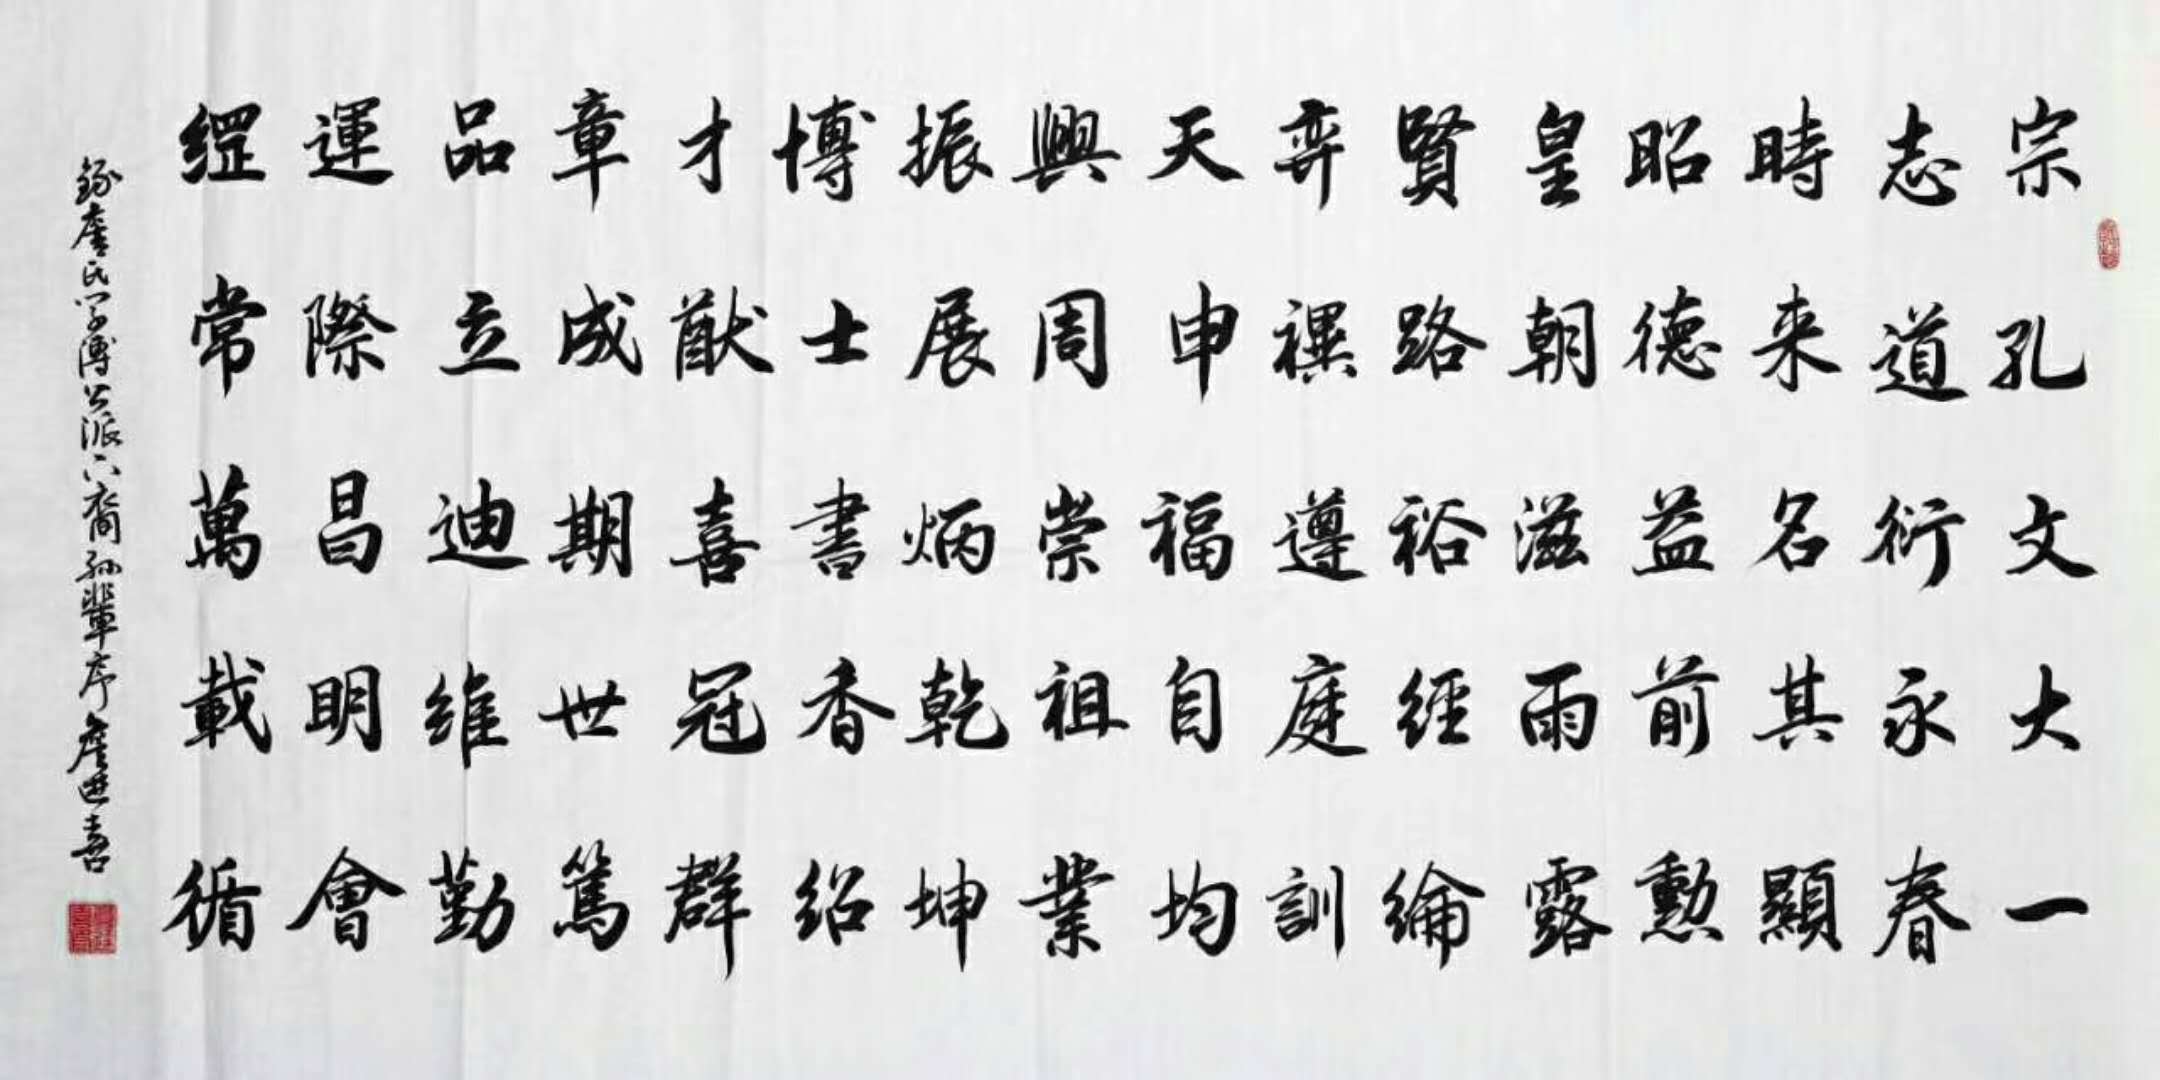 宗孔文大一
志道衍永春
時来名其顯
昭德益前勳
皇朝滋雨露
賢路裕經綸
弈禩遵庭訓
天申福自均
興周崇祖業
振展炳乾坤
博士書香紹
才猷喜冠群
章成期世篤
品立迪維勤
運際昌明會
綱常萬載循
錄詹氏學博公派下裔孫輩序詹進喜